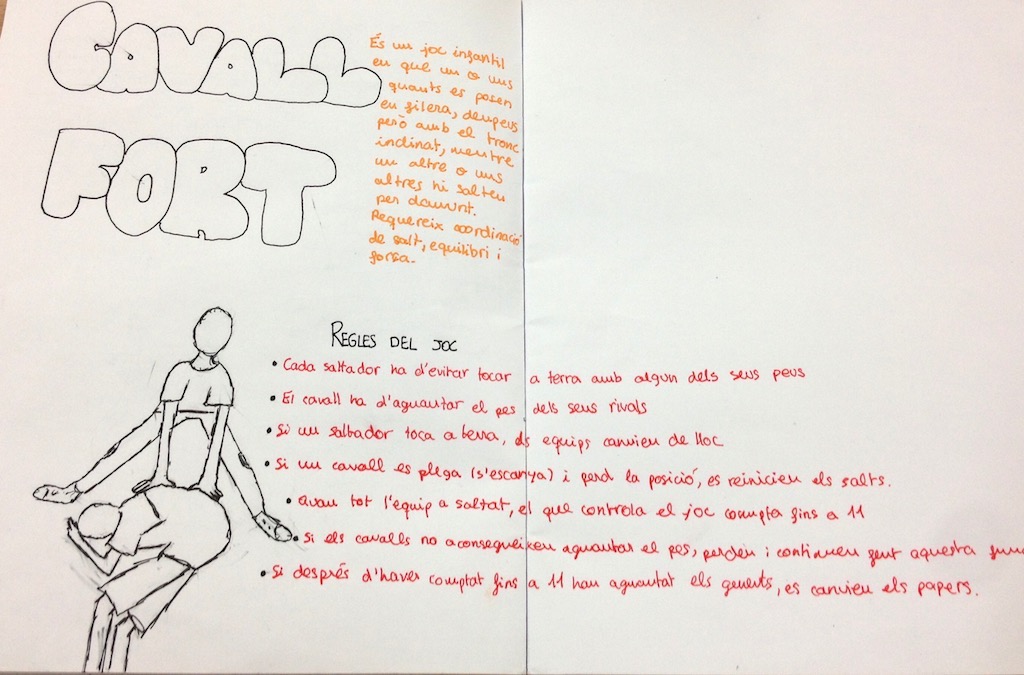 CAVALL
FORT
És un joc infantil
en que un o uns
quants es posen
en filera, dempeus
però amb el tronc
inclinat, mentre
un altre o uns
altres hi salten
per damunt.
Requereix coordinació
de salt, equilibri i
força.
REGLES DEL JOC
• Cada saltador ha d'evitar tocar a terra amb algun dels seus peus
• El cavall ha d'aguantar el pes dels seus rivals
• Si un saltador toca a terra, els equips canvien de lloc
• Si un cavall es plega (s'escanya) i perd la posició, es reinicien els salts.
• Quan tot l'equip a saltat, el que controla el joc compta fins a 11
• Si els cavalls no aconsegueixen aguantar el pes, perden i continuen fent aquesta
• Si després d'haver comptat fins a 11 han aguantat els genets, es canvien els papers.